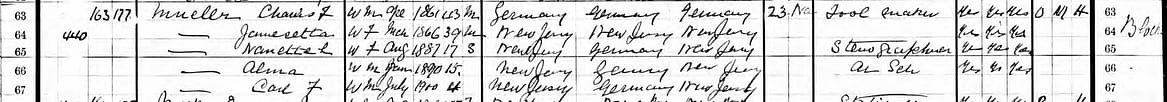 63 163 177 Mueller Charles F W M Apr 1861 43 M Germany Germany Germany 23 Na Tool maker Yes Yes Yes O M H 63
64 440 — Jamesetta W F Mch 1866 39 M New Jersey New Jersey New Jersey Yes Yes Yes 64
65 — Nanette L W F Aug 1887 17 S New Jersey Germany New Jersey Stenographer Yes Yes Yes 65
66 — Alma W M Jan 1890 15 New Jersey Germany New Jersey At Sch Yes Yes Yes 66
67 — Carl F W M July 1900 4 New Jersey Germany New Jersey 67